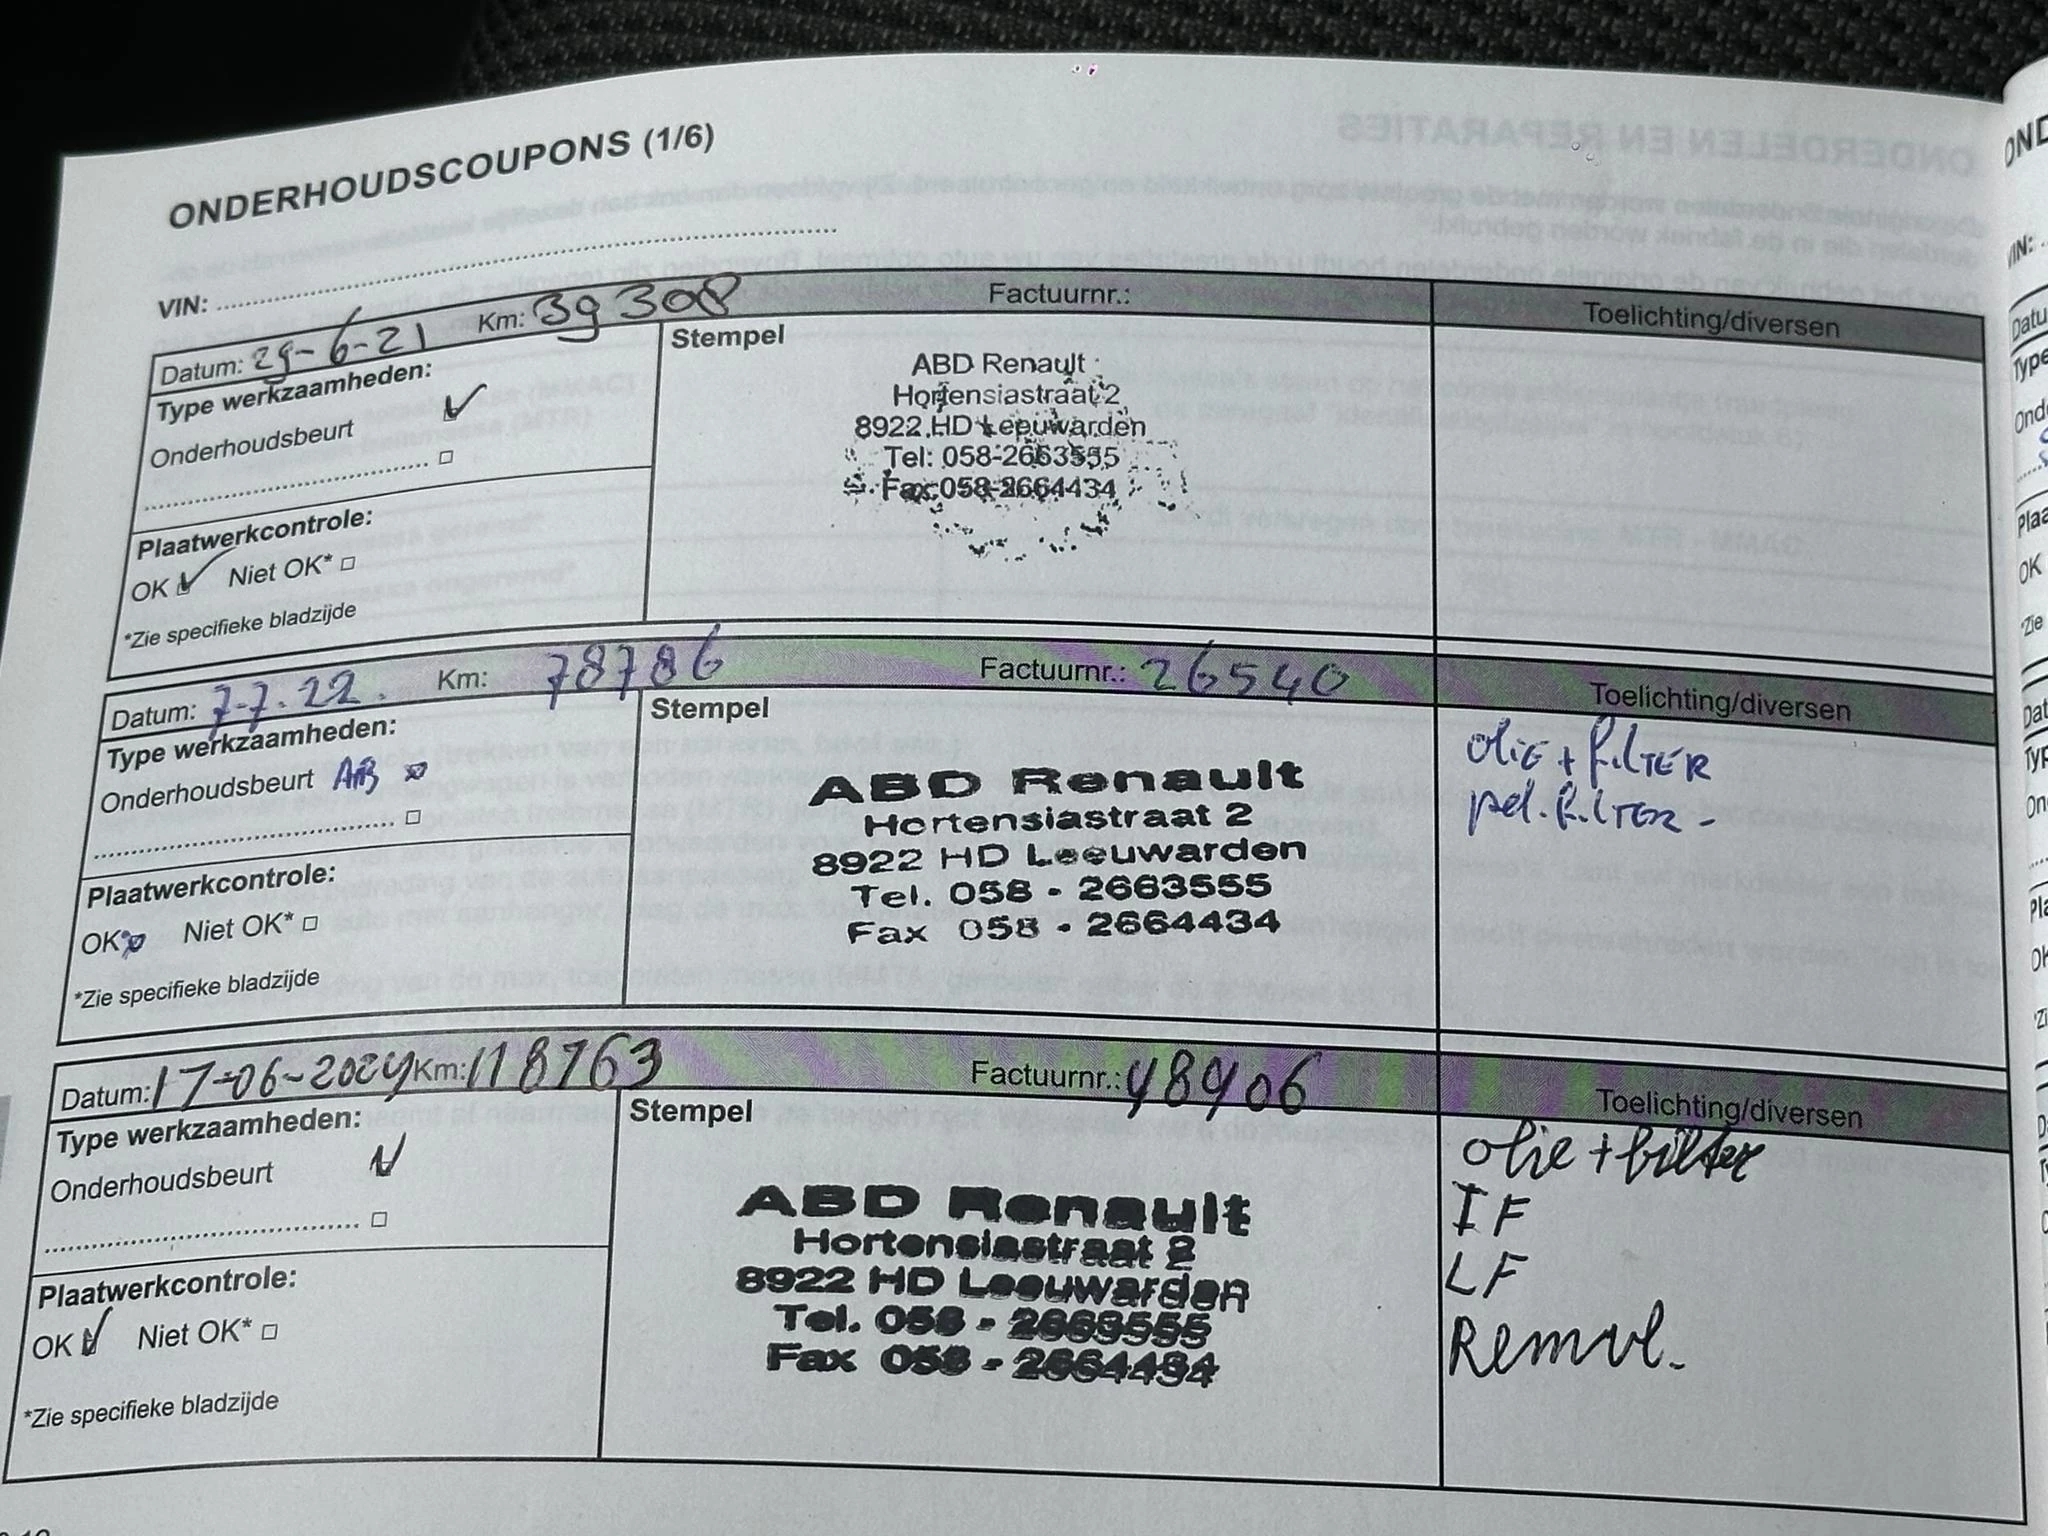 ONDERHOUDSCOUPONS (1/6)
VIN:
Datum: 29-6-21 Km: 39308 Factuurnr.: Toelichting/diversen
Type werkzaamheden:
Onderhoudsbeurt
Plaatwerkcontrole:
OK Niet OK*
*Zie specifieke bladzijde
Stempel
ABD Renault
Hortensiastraat 2
8922 HD Leeuwarden
Tel: 058-2663555
Fax:058-2664434
Datum: 7-7-22. Km: 78786 Factuurnr.: 26540 Toelichting/diversen
Type werkzaamheden:
Onderhoudsbeurt AB
Plaatwerkcontrole:
OK Niet OK*
*Zie specifieke bladzijde
Stempel
ABD Renault
Hortensiastraat 2
8922 HD Leeuwarden
Tel. 058 - 2663555
Fax 058 - 2664434
oliE + filTER
pol.filTER -
Datum: 17-06-2024 Km: 118763 Factuurnr.: 48906 Toelichting/diversen
Type werkzaamheden:
Onderhoudsbeurt
Plaatwerkcontrole:
OK Niet OK*
*Zie specifieke bladzijde
Stempel
ABD Renault
Hortensiastraat 2
8922 HD Leeuwarden
Tel. 058 - 2663555
Fax 058 - 2664434
olie + filter
IF
LF
Remvl.